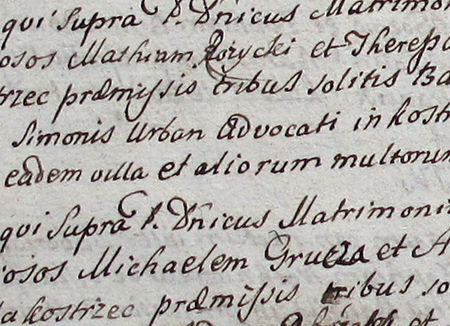 qui Supra P. Dnicus Matrimoni
osos Mathiam Rozycki et Theresa
trzec præmissis tribus solitis Ba
Simonis Urban advocati in Kostr
eadem villa et aliorum multorum
qui Supra P. Dnicus Matrimoni
iosos Michaelem Gruca et A
Kostrzec præmissis tribus so
et